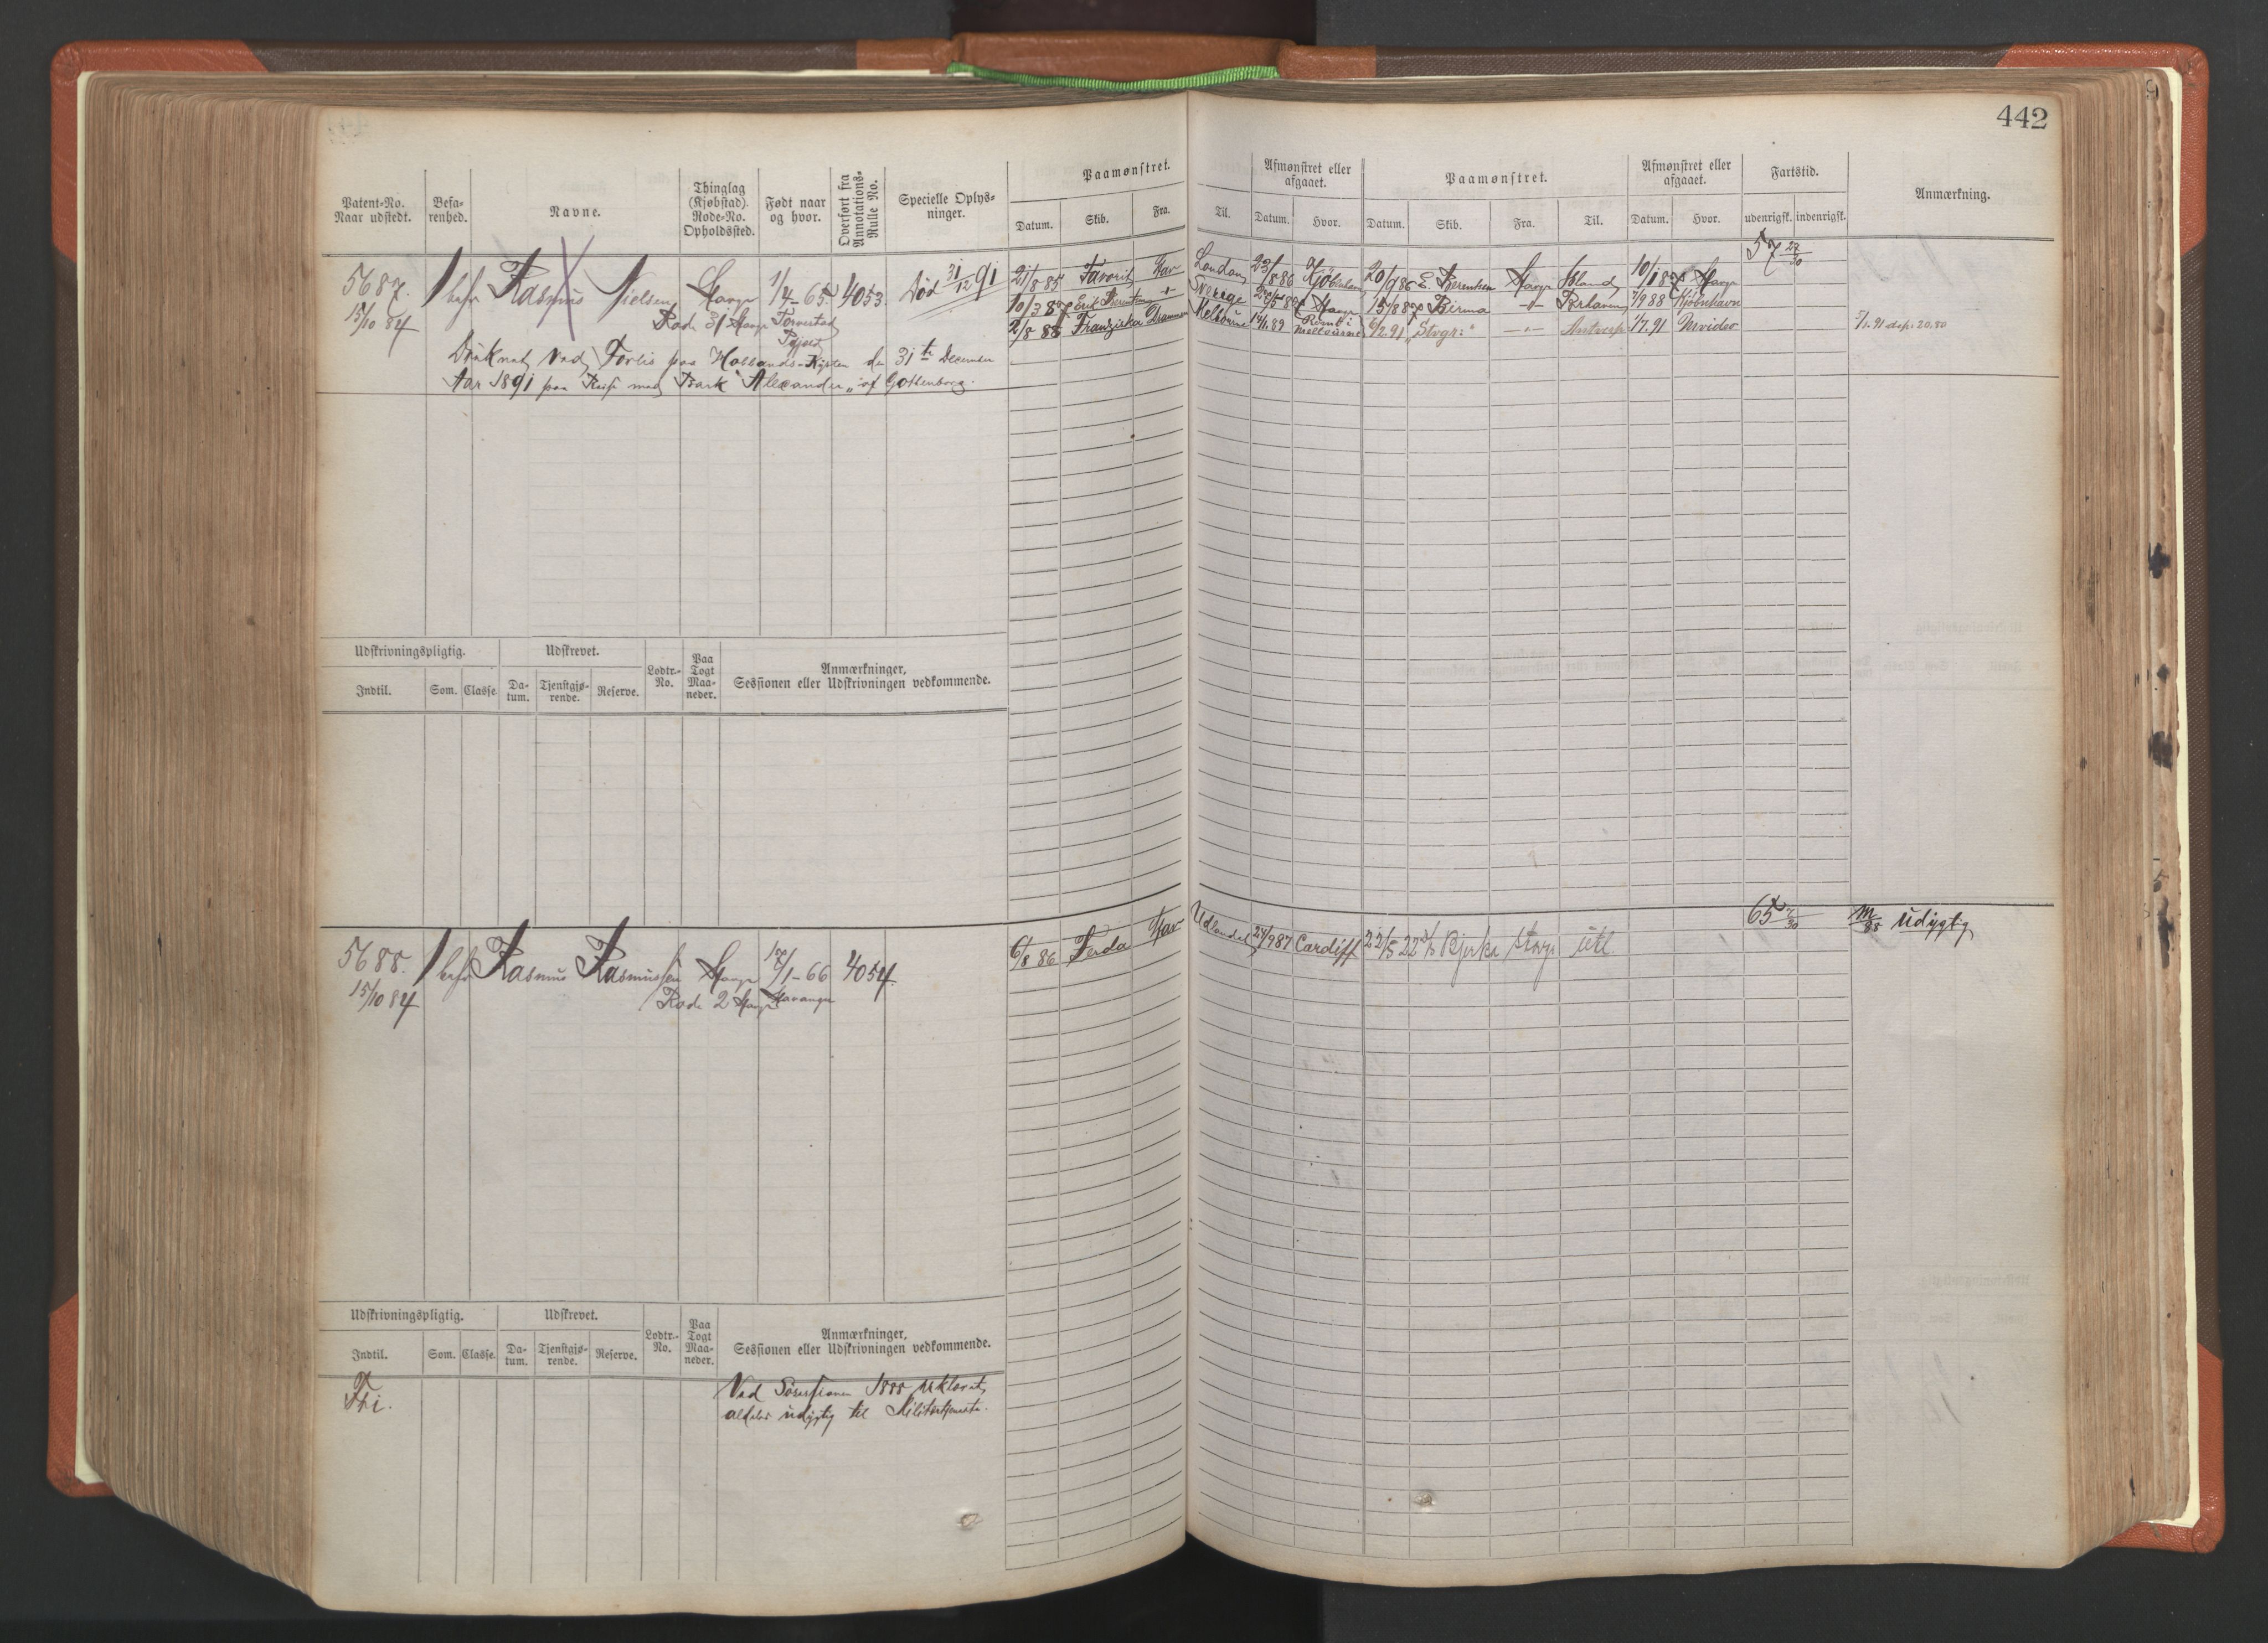 442
Patent-No. Naar udstedt.
Befarenhed.
Navne.
Thinglag (Kjøbstad). Rode-No. Opholdssted.
Født naar og hvor.
Overført fra Annotations-Rulle No.
Specielle Oplysninger.
Paamønstret.
Datum. Skib. Fra. Til.
Afmønstret eller afgaaet.
Datum. Hvor.
Paamønstret.
Datum. Skib. Fra. Til.
Afmønstret eller afgaaet.
Datum. Hvor.
Fartstid.
udenrigsk. indenrigsk.
Anmærkning.
57 27/30
5687. 1 befr Rasmus Nielsen Stavgr 1/4-65. 4053. Død 31/12 91
15/10 84 Rode 31 Stavgr Torvestad
21/8 85 Favorit Stav London 23/8 86 Kjöbenhavn 20/9 86 E. Berentsen Stavgr Island 10/1 87 Stavgr
10/3 87 Erik Berentsen -"- Norige 20/5 87 Stavgr 15/8 87 Birma -"- Brhaven 1/9 88 Kjöbnhavn
2/8 88 Franziska Drammen Melbourne 14/1.89 Römt i Melbourne 6/2.91 "Stvgr:" -"- Antwerp 1/7.91 Mvideo
Druknet ved Forlis paa Hollands-Kysten den 31te December
Aar 1891 paa Reise med Bark "Alexander" af Gottenborg.
Udskrivningspligtig.
Indtil. Som. Classe.
Udskrevet.
Datum. Tjenstgjørende. Reserve.
Lodtr.-No.
Paa Togt Maaneder.
Anmærkninger, Sessionen eller Udskrivningen vedkommende.
65 7/30 m/88 udygtig
5688. 1 befr Rasmus Rasmussen Stavgr /1-66 4054.
15/10 84 Rode 2 Stavgr Stavanger
6/8 86 Terda Stav Udlandet 24/9 87 Cardiff 22/5 22 Bjerka Stavgr Utl.
Udskrivningspligtig.
Indtil. Som. Classe.
Udskrevet.
Datum. Tjenstgjørende. Reserve.
Lodtr.-No.
Paa Togt Maaneder.
Anmærkninger, Sessionen eller Udskrivningen vedkommende.
Fri.
Ved Söсessionen 1888 erklæret
aldeles udygtig til Militærtjeneste.